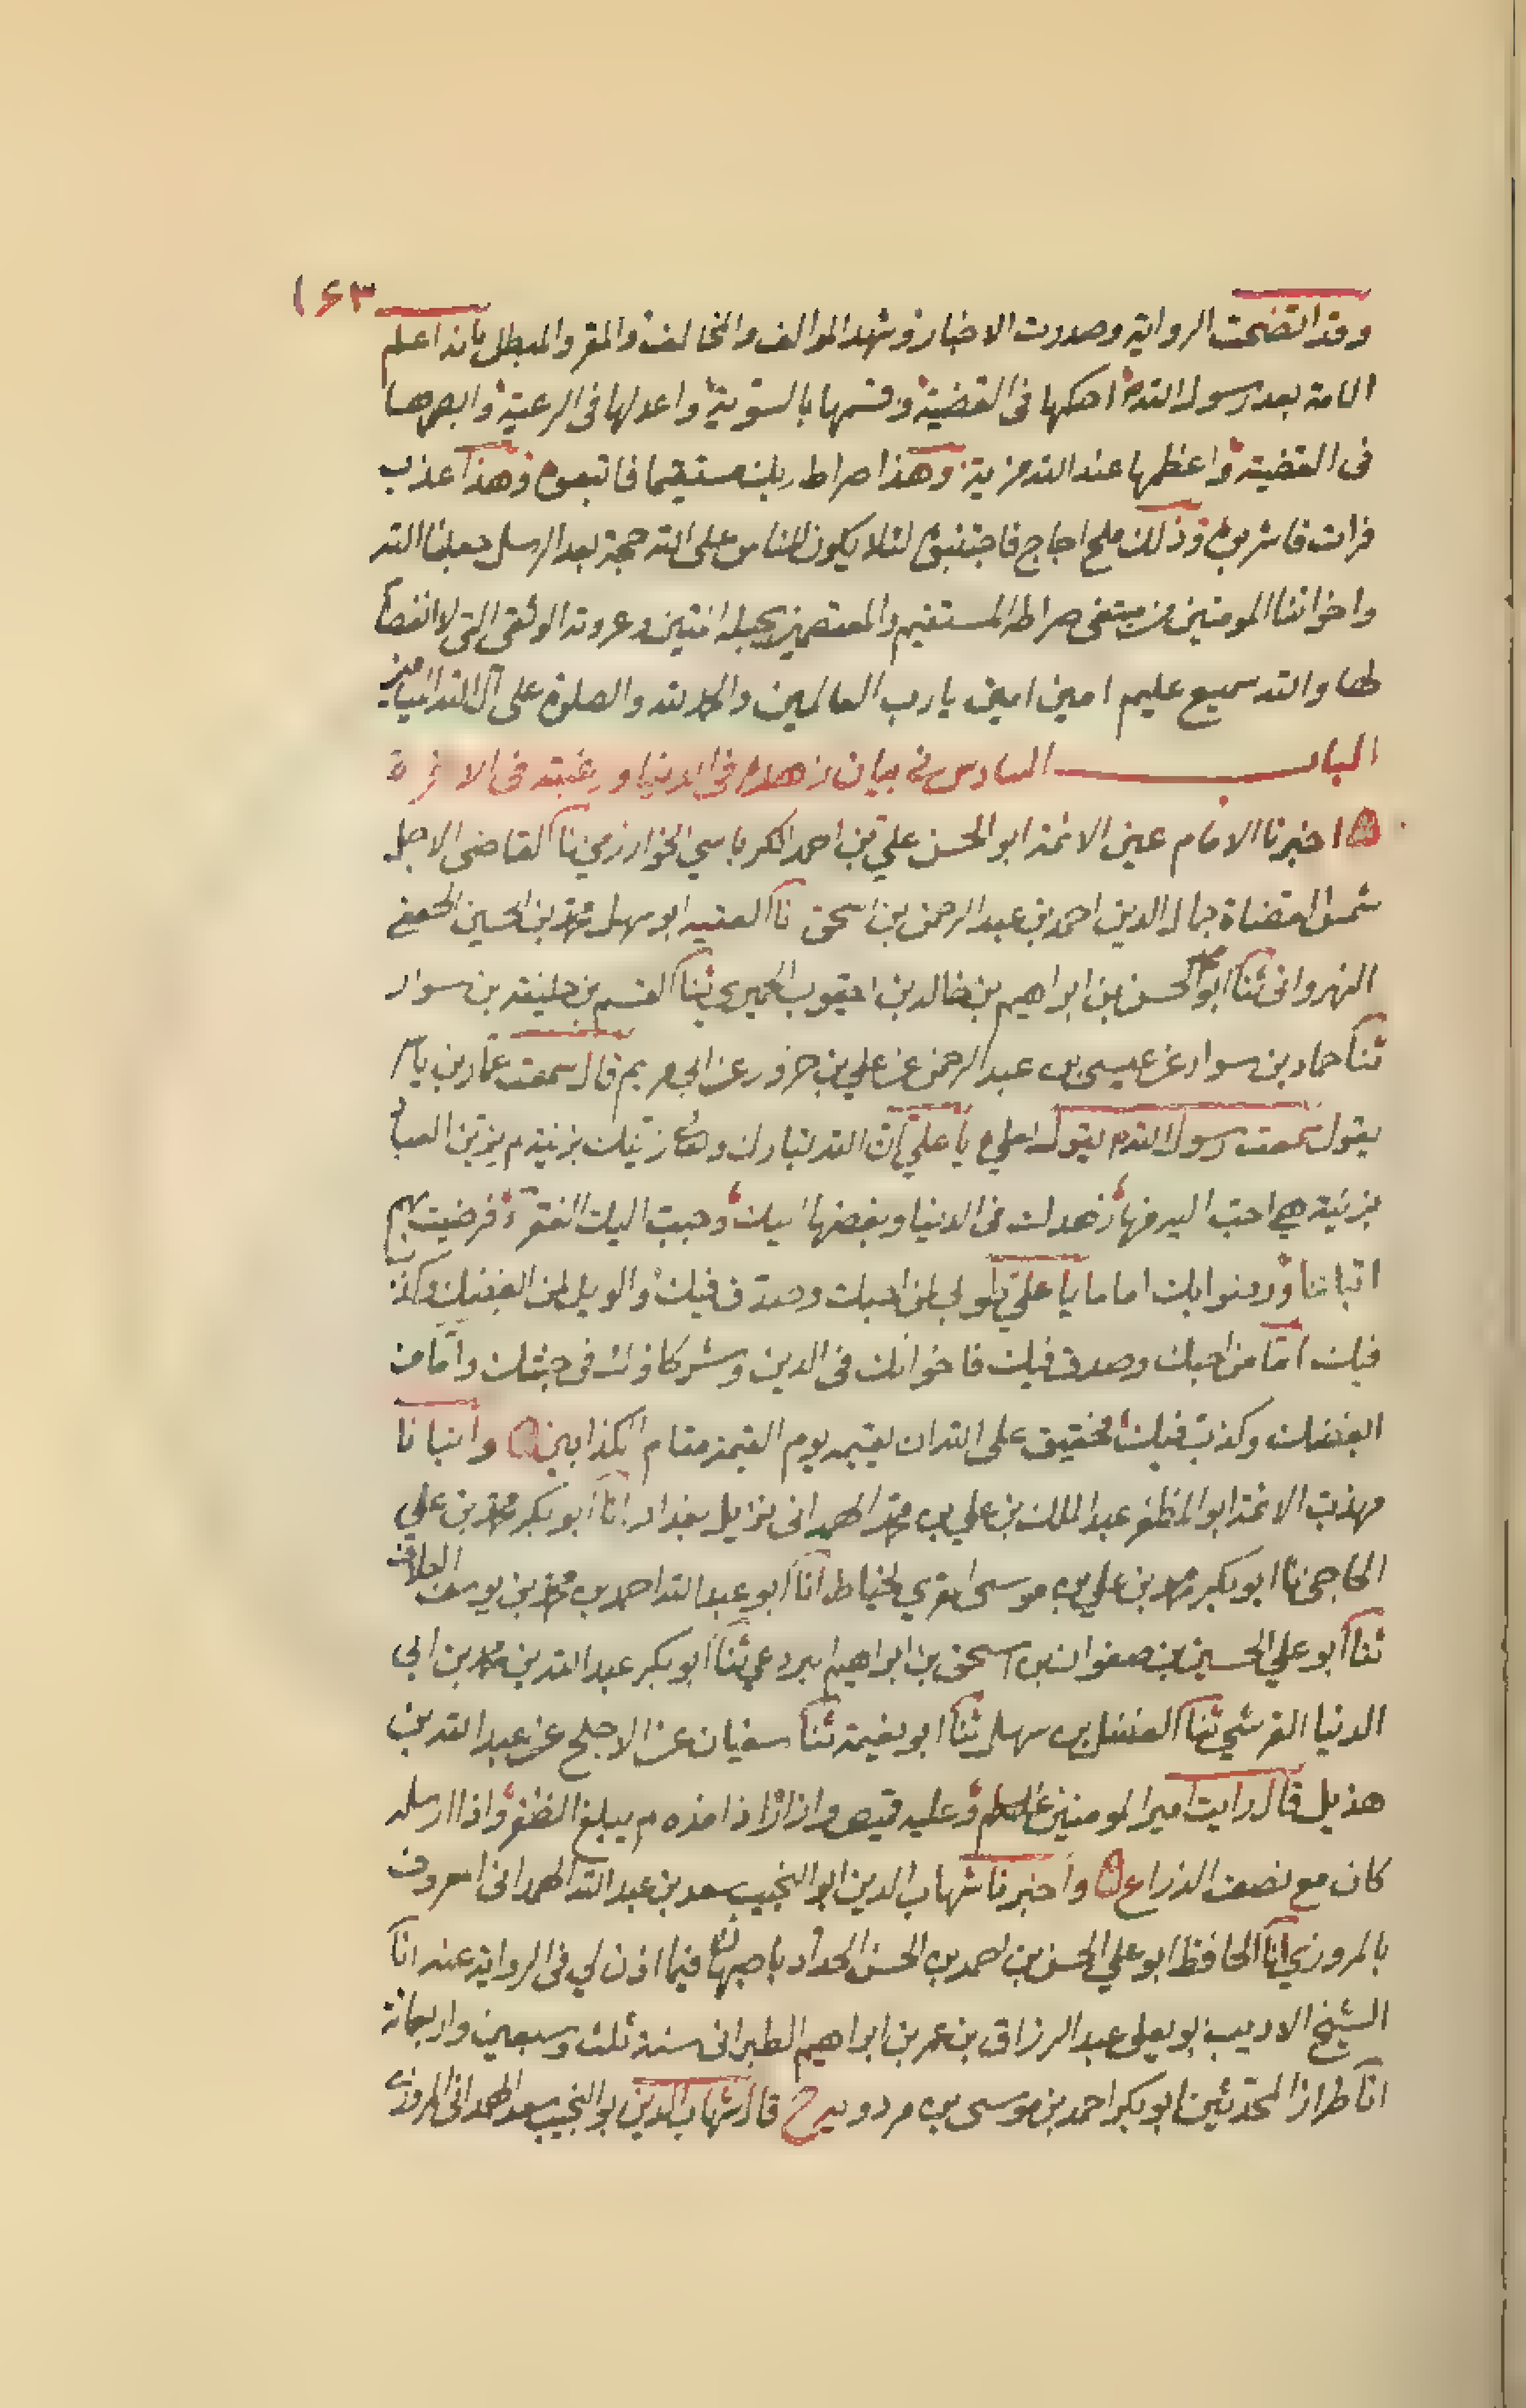 ١٦٣
وقد اتضحت الرواية وصدرت الاخبار وشهد الموالف والمخالف والمقر والمبطل بانه اعلم
الامة بعد رسول الله احكمها فى القضية وقسمها بالسوية واعدلها فى الرعية وابصرها
فى القضية واعظمها عند الله مزية وهذا صراط ربك مستقيما فاتبعوه وهذا عذب
فرات فاشربوه وذلك ملح اجاج فاجتنبوه لئلا يكون للناس على الله حجة بعد الرسل جعلنا الله
واخواننا المومنين من مبتغى صراطه المستقيم والمعتصمين بحبله المتين وعروته الوثقى التى لا انفصام
لها والله سميع عليم امين امين يارب العالمين والحمد لله والصلوة على آل الله الميامين
الباب السادس فى بيان زهده فى الدنيا ورغبته فى الاخرة
اخبرنا الامام عين الائمة ابو الحسن علي بن احمد الكرباسي الخوارزمي نا القاضى الاجل
شمس القضاة جمال الدين احمد بن عبد الرحمن بن اسحق نا الفقيه ابو سهل محمد بن الحسين الحنفى
النهروانى ثنا ابو الحسن بن ابراهيم بن خالد بن يعقوب الحميري ثنا القسم بن خليفه بن سوار
ثنا حماد بن سوار عن عيسى بن عبد الرحمن عن علي بن حزور عن ابي مريم قال سمعت عمار بن ياسر
يقول سمعت رسول الله م يقول لعلي ع يا علي ان الله تبارك وتعا زينك بزينة لم يزين العباد
بزينة هي احب اليه منها زهدك فى الدنيا وبغضها اليك وحبب اليك الفقراء فرضيت بهم
اتباعا ورضوا بك اماما يا علي طوبى لمن احبك وصدق فيك والويل لمن ابغضك وكذب
فيك اما من احبك وصدق فيك فاخوانك فى الدين وشركاؤك فى جنتك واما من
ابغضك وكذب فيك فحقيق على الله ان يقيمه يوم القيمة مقام الكذابين وانبانا
مهذب الائمة ابو المظفر عبد الملك بن علي بن محمد الهمدانى نزيل بغداد انا ابو بكر محمد بن علي
الحاجى نا ابو بكر محمد بن علي بن موسى المقري الخياط انا ابو عبد الله احمد بن محمد بن يوسف العلاف
ثنا ابو علي الحسين بن صفوان بن اسحق بن ابراهيم البردعي ثنا ابو بكر عبد الله بن محمد بن ابي
الدنيا القرشي ثنا الفضل بن سهل ثنا ابو نعيم ثنا سفيان عن الاجلح عن عبد الله بن
هذيل قال رايت امير المومنين عليه السلم وعليه قميص وازار اذا مده م يبلغ الظفر واذا ارسله
كان مع نصف الذراع واخبرنا شهاب الدين ابو النجيب سعد بن عبد الله الهمدانى المعروف
بالمروزي انا الحافظ ابو علي الحسن بن احمد بن الحسن الحداد باصبهان فيما اذن لي فى الرواية عنه انا
الشيخ الاديب ابو يعلى عبد الرزاق بن عمر بن ابراهيم الطبرانى سنة ثلث وسبعين واربعمائة
انا طراز المحدثين ابو بكر احمد بن موسى بن مردويه ح قال شهاب الدين ابو النجيب سعد الهمدانى المروزي